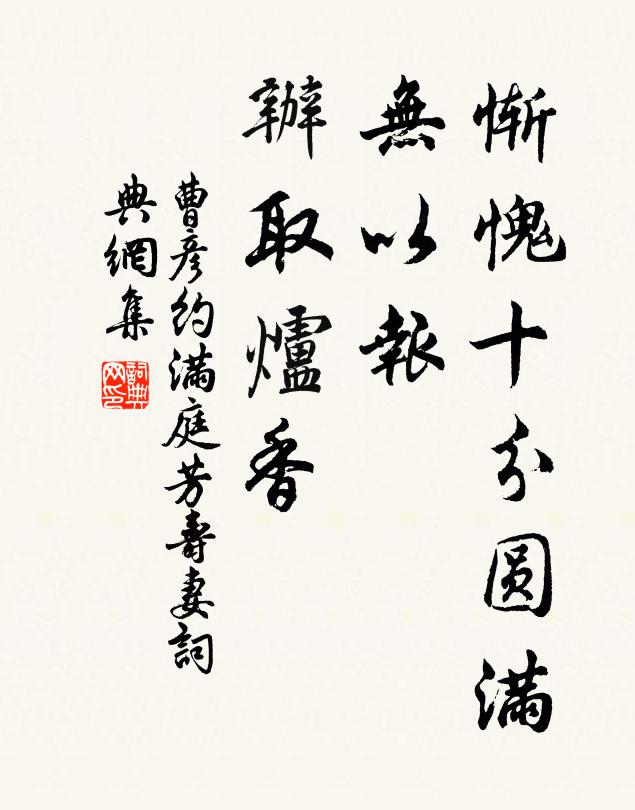 慚愧十分圓滿
無以報
辦取爐香
曹彦約滿庭芳壽妻詞
典網集
詞典网印